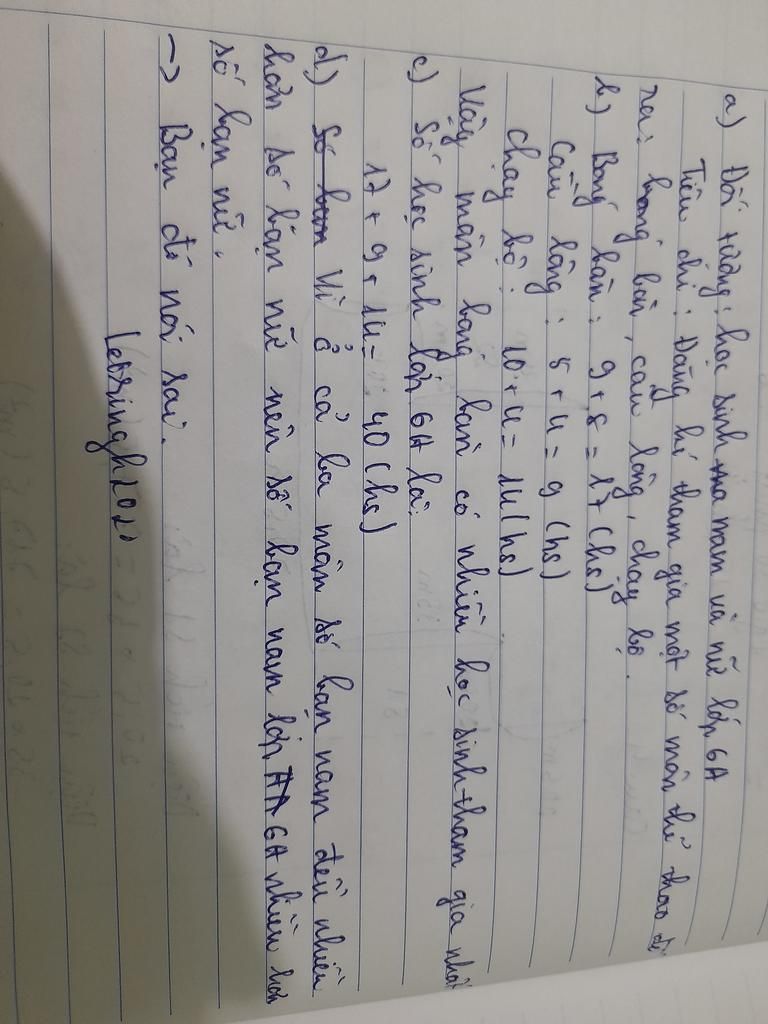 a) Đối tượng: học sinh nam và nữ lớp 6A
Tiêu chí: Đăng kí tham gia một số môn thể thao hè
bóng bàn, cầu lông, chạy bộ.
b) Bóng bàn: 9 + 8 = 17 (hs)
Cầu lông: 5 + 4 = 9 (hs)
chạy bộ: 10 + 4 = 14 (hs)
Vậy môn bóng bàn có nhiều học sinh tham gia nhất
c) Số học sinh lớp 6A là:
17 + 9 + 14 = 40 (hs)
d) Số bạn Vì ở cả ba môn số bạn nam đều nhiều
hơn số bạn nữ nên số bạn nam lớp 6A nhiều hơn
số bạn nữ.
-> Bạn đó nói sai.